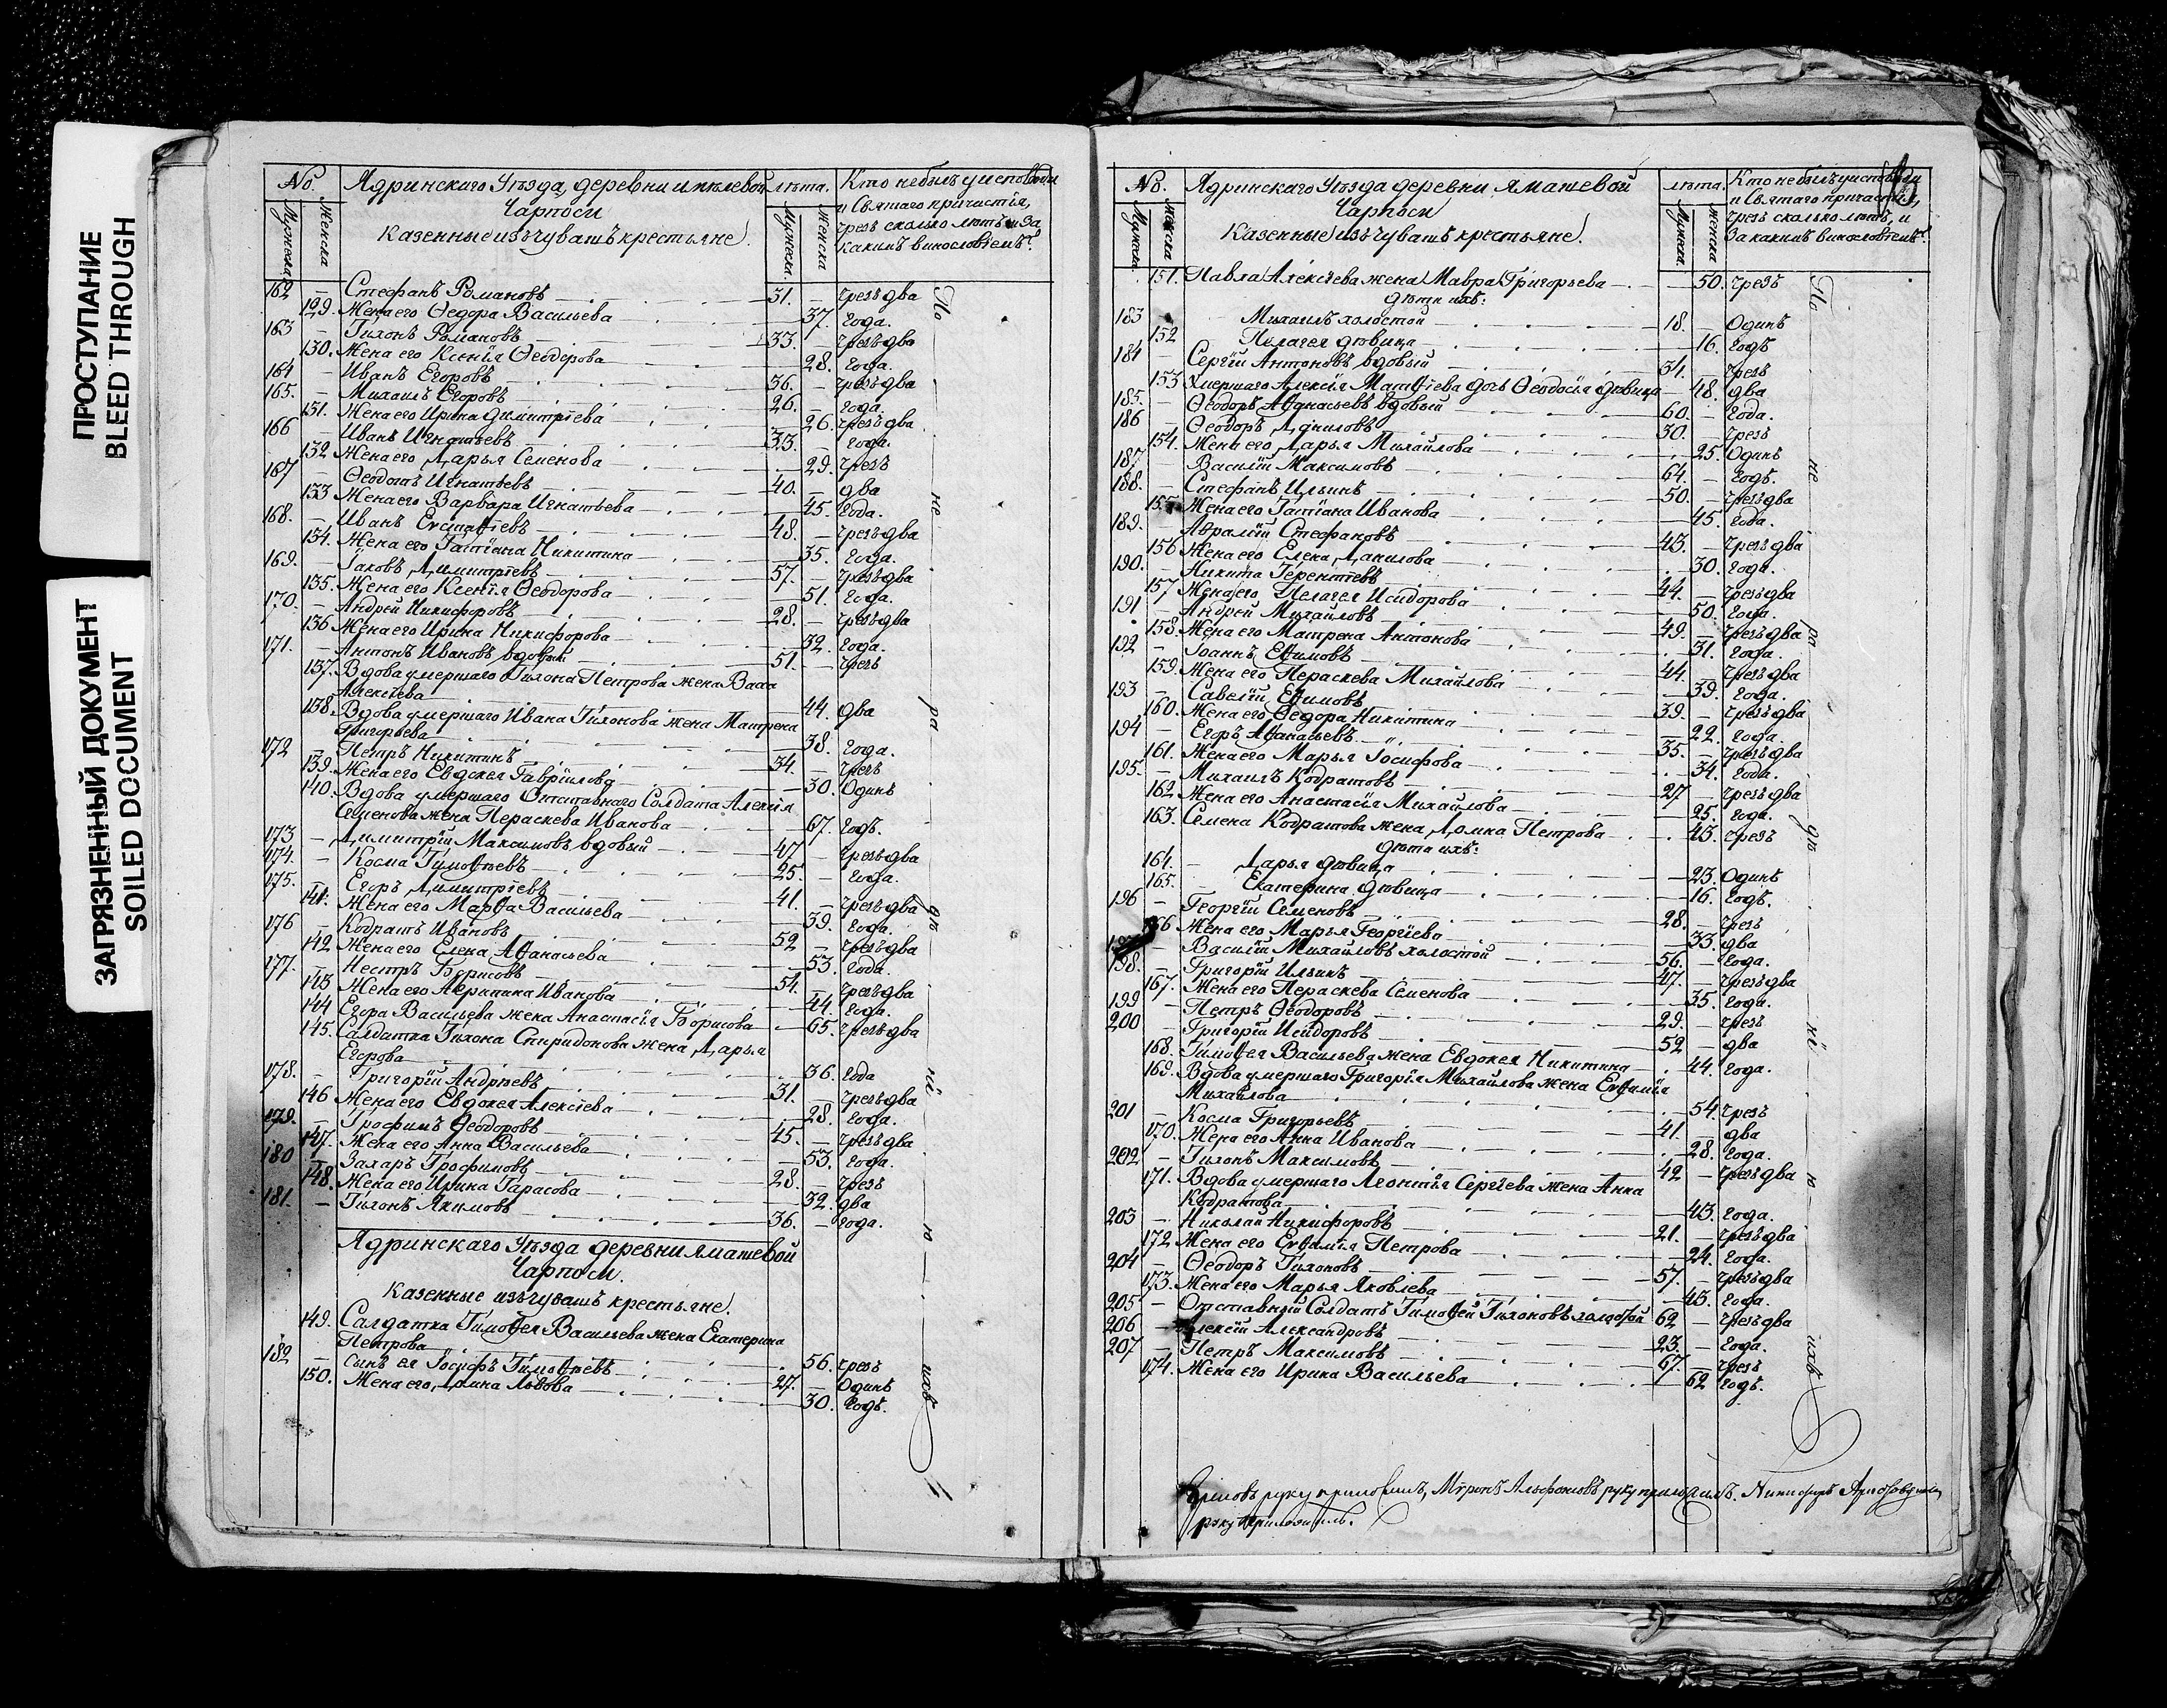 ПРОСТУПАНИЕ
BLEED THROUGH
ЗАГРЯЗНЕННЫЙ ДОКУМЕНТ
SOILED DOCUMENT
№. Ядринскаго Уѣзда, деревни лѣта. Кто небылъ уисповѣди
Чарпоси и Святаго причастія,
Казенные изъ чувашъ крестьяне. чрезъ сколько лѣтъ и за
какимъ винословіемъ?
Мужеска Женска Мужеска. Женска
162 — Стефанъ Романовъ 31. — чрезъ два
129. Жена его Ѳедора Васильева — 37. года.
163 — Тихонъ Романовъ 33. — чрезъ два
130. Жена его Ксенія Ѳеодорова — 28. года.
164 — Иванъ Егоровъ 36. — чрезъ два
165. — Михаилъ Егоровъ 26. — года.
131. Жена его Ирина Димитріева — 26. чрезъ два
166 — Иванъ Игнатьевъ 33. — года.
132 Жена его Дарья Семенова — 29. чрезъ
167 — Ѳеодотъ Игнатьевъ 40. — два
133 Жена его Варвара Игнатьева — 45. года.
168. — Иванъ Евстаѳіевъ 48. — чрезъ два
134. Жена его Татіана Никитина — 35. года.
169. — Іаковъ Димитріевъ 57. — чрезъ два
135. Жена его Ксенія Ѳеодорова — 51. года.
170. — Андрей Никифоровъ 28. — чрезъ два
136 Жена его Ирина Никифорова — 32. года.
171. — Антонъ Ивановъ вдовый 51. — чрезъ
137. Вдова умершаго Тихона Петрова жена Васса
Алексѣева — 44. два
138. Вдова умершаго Ивана Тихонова жена Матрена
Григорьева — 38. года.
172 — Петръ Никитинъ 34. — чрезъ
139. Жена его Евдокея Гаврилова — 30. Одинъ
140. Вдова умершаго Отставнаго Солдата Алексія
Семенова жена Пераскева Иванова — 67. годъ.
173 — Димитрій Максимовъ вдовый — 47 — чрезъ два
174. — Косма Тимоѳеевъ 25. — года.
175. — Егоръ Димитріевъ 41. — чрезъ два
141. Жена его Марѳа Васильева — 39. года.
176 — Кодратъ Ивановъ 52 — чрезъ два
142 Жена его Елена Аѳанасьева — 53. года.
177. — Нестръ Борисовъ 54. — чрезъ два
143 Жена его Агрипина Иванова — 44. года.
144 Егора Васильева жена Анастасія Борисова — 65. чрезъ два
145. Салдатка Тихона Спиридонова жена Дарья
Егорова — 36. года
178. — Григорій Андрѣевъ 31. — чрезъ два
146 Жена его Евдокея Алексіева — 28. года.
179. — Трофимъ Ѳеодоровъ 45. — чрезъ два
147. Жена его Анна Васильева — 53. года.
180 — Захаръ Трофимовъ 28. — чрезъ
148. Жена его Ирина Тарасова — 32. два
181. — Тихонъ Якимовъ 36. — года.
Ядринскаго Уѣзда деревни Яматевой
Чарпоси.
Казенные изъ чувашъ крестьяне.
149. Салдатка Тимоѳея Васильева жена Екатерина
Петрова — 56. чрезъ
182 — сынъ ея Іосифъ Тимоѳеевъ 27. — Одинъ
150. Жена его Домна Львова — 30. годъ.
По не ра дѣ нії ю ихъ
№. Ядринскаго Уѣзда деревни Яматевой лѣта. Кто небылъ уисповѣди
Чарпоси и Святаго причастія,
Казенные изъ чувашъ крестьяне. чрезъ сколько лѣтъ, и
за какимъ винословіемъ?
Мужска. Женска Мужеска. Женска
151. Павла Алексѣева жена Мавра Григорьева — 50. чрезъ
дѣти ихъ:
183 Михаилъ холостой 18. — Одинъ
152 Пелагея дѣвица — 16. годъ
184 — Сергій Антоновъ вдовый 54. — чрезъ
153 Умершаго Алексія Матѳіева дочь Ѳеодосія дѣвица — 48. два
185. — Ѳеодоръ Аѳанасьевъ вдовый 60. — года.
186 — Ѳеодоръ Даниловъ 30. — чрезъ
154. Жена его Дарья Михайлова — 25. Одинъ
187. — Василій Максимовъ 64. — годъ.
188. — Стефанъ Ильинъ 50. — чрезъ два
155 Жена его Татіана Иванова — 45. года.
189. Авралій Стефановъ 43. — чрезъ два
156 Жена его Елена Данилова — 30. года.
190. — Никита Терентіевъ 44. — чрезъ два
157 Жена его Пелагея Исидорова — 50. года.
191 — Андрей Михайловъ 49. — чрезъ два
158. Жена его Матрена Антонова — 31. года.
192 — Іоаннъ Еѳимовъ 44. — чрезъ два
159. Жена его Пераскева Михайлова — 39. года.
193 — Савелій Еѳимовъ 39. — чрезъ два
160. Жена его Ѳедора Никитина — 22. года.
194 — Егоръ Аѳанасьевъ 35. — чрезъ два
161. Жена его Марья Іосифова — 34. года.
195. — Михаилъ Кодратовъ 27 — чрезъ два
162 Жена его Анастасія Михайлова — 25. года.
163. Семена Кодратова жена Домна Петрова — 45. чрезъ
дѣти ихъ:
164. — Дарья дѣвица — 23. Одинъ
165. — Екатерина дѣвица — 16. годъ.
196 — Георгій Семеновъ 28. — чрезъ
166 Жена его Марья Георгіева — 33. два
Василій Михайловъ холостой 56. — года.
198. — Григорій Ильинъ 47. — чрезъ два
167. Жена его Пераскева Семенова — 35. года.
199 — Петръ Ѳеодоровъ 29. — чрезъ
200 — Григорій Исидоровъ 52 — два
168. Тимоѳея Васильева жена Евдокея Никитина — 44. года.
169. Вдова умершаго Григорія Михайлова жена Евѳимія
Михайлова — 54. чрезъ
201 — Косма Григорьевъ 41. — два
170. Жена его Анна Иванова — 28. года.
202. — Тихонъ Максимовъ 42 — чрезъ два
171. Вдова умершаго Леонтія Сергѣева жена Анна
Кодратова — 43. года.
203 — Николай Никифоровъ 21. — чрезъ два
172 Жена его Евѳимія Петрова — 24. года.
204 — Ѳеодоръ Тихоновъ 57. — чрезъ два
173. Жена его Марья Яковлева — 45. года.
205 — Отставный Солдатъ Тимоѳей Тихоновъ 62 — чрезъ два
206 — Алексій Александровъ 23. — года.
207 — Петръ Максимовъ 67. — чрезъ
174. Жена его Ирина Васильева — 62 годъ.
По не ра дѣ нії ю ихъ
руку приложилъ, руку приложилъ.
руку приложилъ.